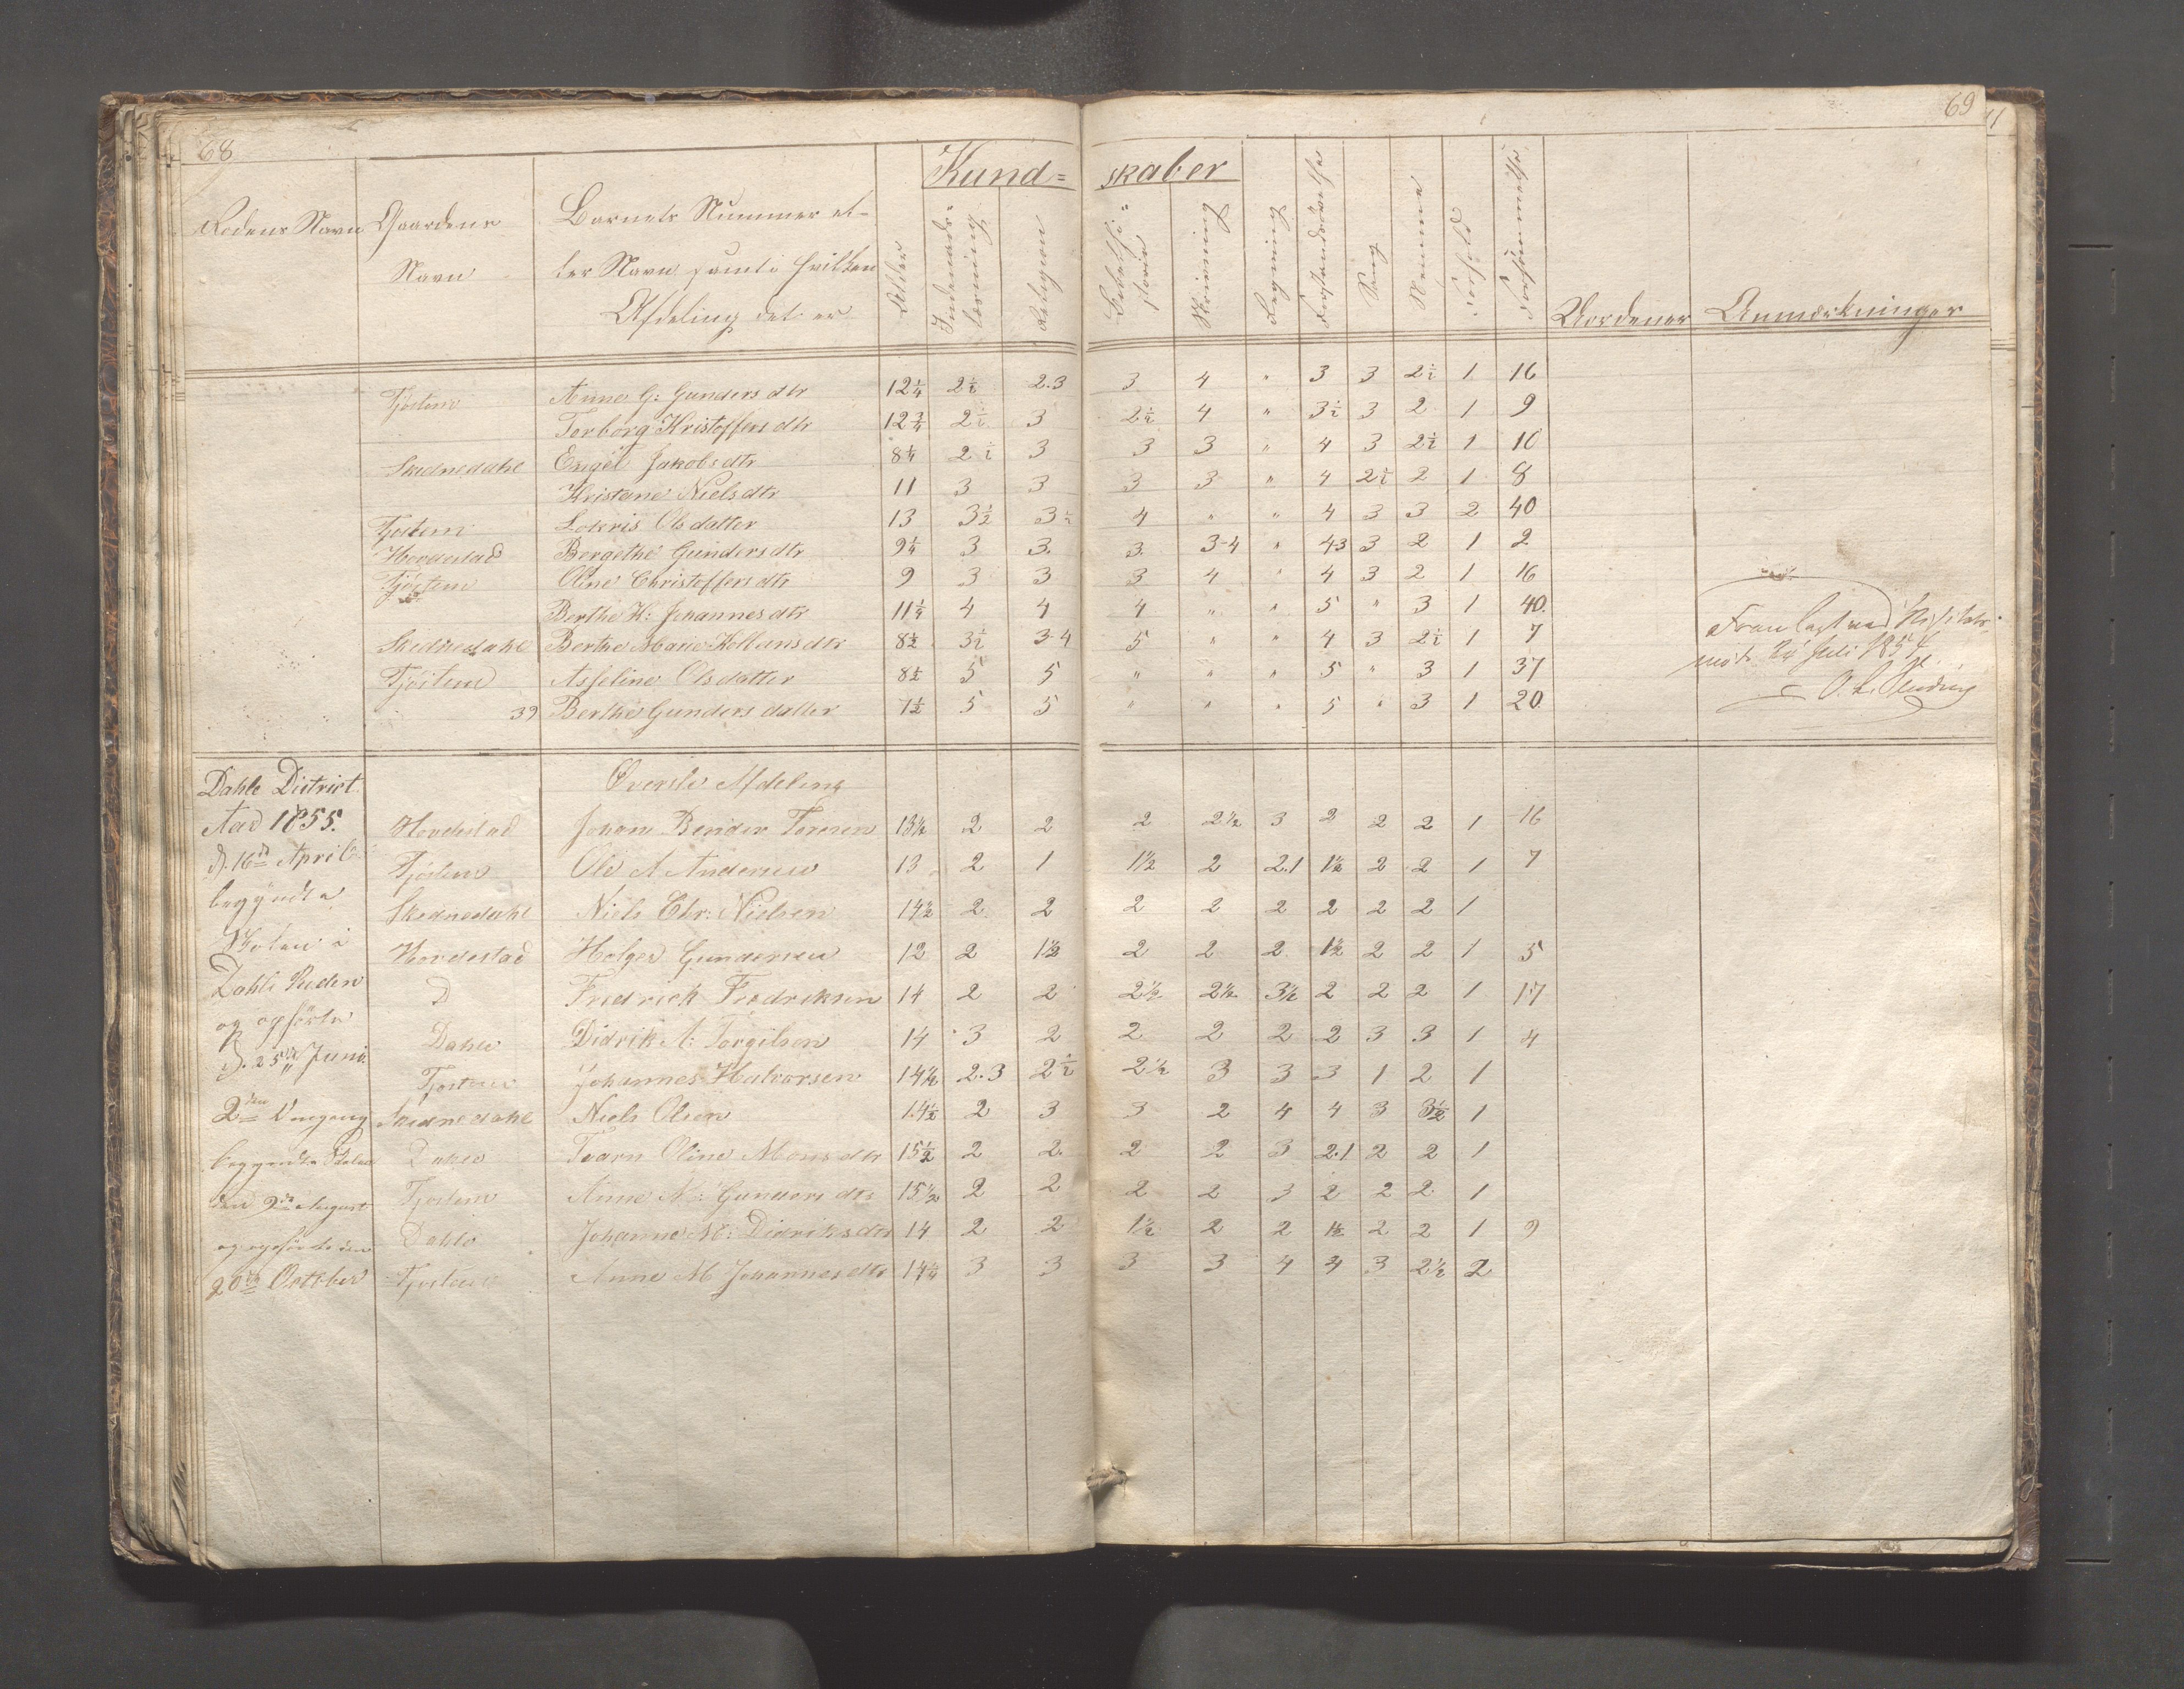 68
69
Kund= skaber
Rodens Navn Gaardens Navn Barnets Nummer el-
ler Navn samt i hvilken
Afdeling det er Alder Indenads-
læsning Religion Bibelhi-
storie Skrivning Regning Forstandsøvelse Sang Nemme Forhold Forsømmelse Uordener Anmærkninger
Tjöstem Anne G: Gundersdtr 12¼ 2½ 2.3 3 4 " 3 3 2½ 1 16
Torborg Kristoffersdtr 12¾ 2½ 3 2½ 4 " 3½ 3 2 1 9
Skednedahl Engel Jakobsdtr 8¼ 2½ 3 3 3 " 4 3 2½ 1 10
Kristene Nielsdtr 11 3 3 3 3 " 4 2½ 2 1 8
Tjöstem Olsdatter 13 3½ 3½ 4 " " 4 3 3 2 40
Hovdestad Bergethe Gundersdtr 9¼ 3 3. 3. 3-4 " 43 3 2 1 2
Tjöstem Oline Christoffersdtr 9 3 3 3 4 " 4 3 2 1 16
Berthe K: Johannesdtr 11¼ 4 4 4 " " 5 " 3 1 40.
Skednedahl Berthe Marie dtr 8½ 3½ 3-4 5 " " 4 3 2½ 1 7
Tjöstem Asseline Olsdatter 8½ 5 5 " " " 5 " 3 1 37
39 Berthe Gundersdatter 7½ 5 5 " " " 5 " 3 1 20.
Juli 1854
Dahle District
Aar 1855.
D. 16de April
begyndte
Skolen i
Dahle Roden
og ophörte
D. 25de Juni
2den Omgang
begyndte Skolen
den 2de August
og ophörte den
20de October
Øverste Afdeling
Hovdestad Johan Bender Toresen 13½ 2 2 2 2½ 3 2 2 2 1 16
Tjöstem Ole A Andersen 13 2 1 1½ 2 2.1 1½ 2 2 1 7
Skednedahl Niels Chr: Nielsen 14½ 2 2 2 2 2 2 2 2 1
Hovdestad Holger Gundersen 12 2 1½ 2 2 2 1½ 2 2 1 5
D Fredrick Fredriksen 14 2 2 2½ 2½ 3½ 2 2 2 1 17
Dahle Didrik A: Torgilsen 14 3 2 2 2 2 2 3 3 1 4
Tjöstem Johannes Halvorsen 14½ 2.3 2½ 2½ 3 3 3 1 2 1
Skednedahl Niels Olsen 14½ 2 3 3 2 4 4 3 3½ 1
Dahle Oline Monsdtr 15½ 2 2. 2 2 3 2.1 2 2 1
Tjöstem Anne N: Gundersdtr 15½ 2 2 2 2 3 2 2 2 1
Dahle Johanne M: Didriksdtr 14 2 2 1½ 2 2 1½ 2 2 1 9
Tjöstem Anne M Johannesdtr 14¼ 3 3 3 3 4 4 3 2½ 2